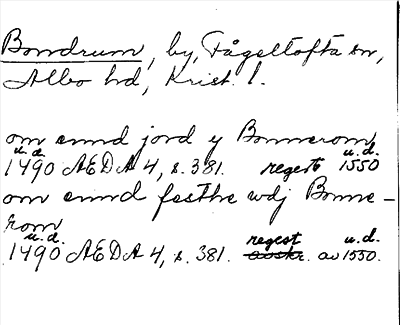 Bondrum, by, Fågeltofta sn,
Albo hd, Krist. l.
om ennd jord y Bonnerom
u.d. u.d.
1490 AEDA 4, s. 381. regest 1550
om ennd festhe wdj Bonne-
rom
u.d. regest u.d.
1490 AEDA 4, s. 381. avskr. av 1550.